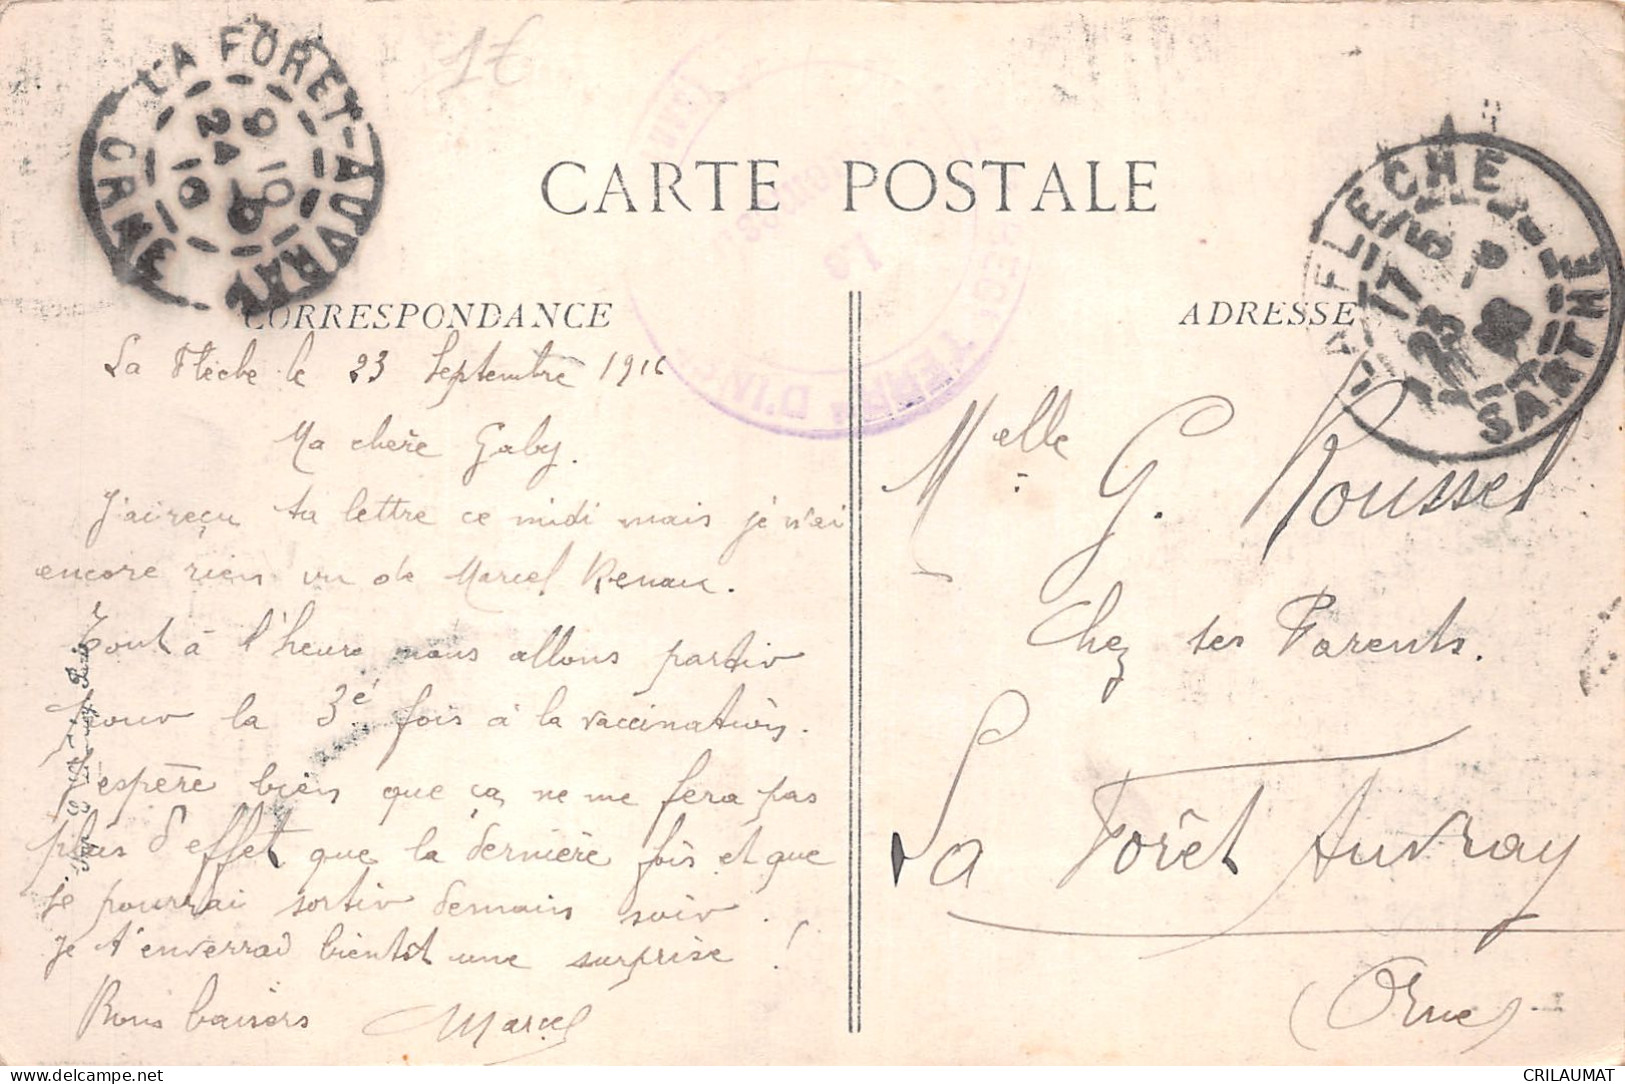 1€
LA FORET-AUVRAY
9 10
24 9
16
ORNE
CARTE POSTALE
LA FLECHE
17
23 9
SARTHE
CORRESPONDANCE
ADRESSE
La Flèche le 23 Septembre 1916
Ma chère Gaby.
J'ai reçu ta lettre ce midi mais je n'ai
encore rien vu de Marcel Renaux.
Tout à l'heure nous allons partir
pour la 3è fois à la vaccination.
J'espère bien que ça ne me fera pas
plus d'effet que la dernière fois et que
je pourrai sortir demain soir.
Je t'enverrai bientôt une surprise !
Bons baisers Marcel
Melle G. Roussel
Chez ses Parents.
La Forêt Auvray
(Orne)
CRILAUMAT